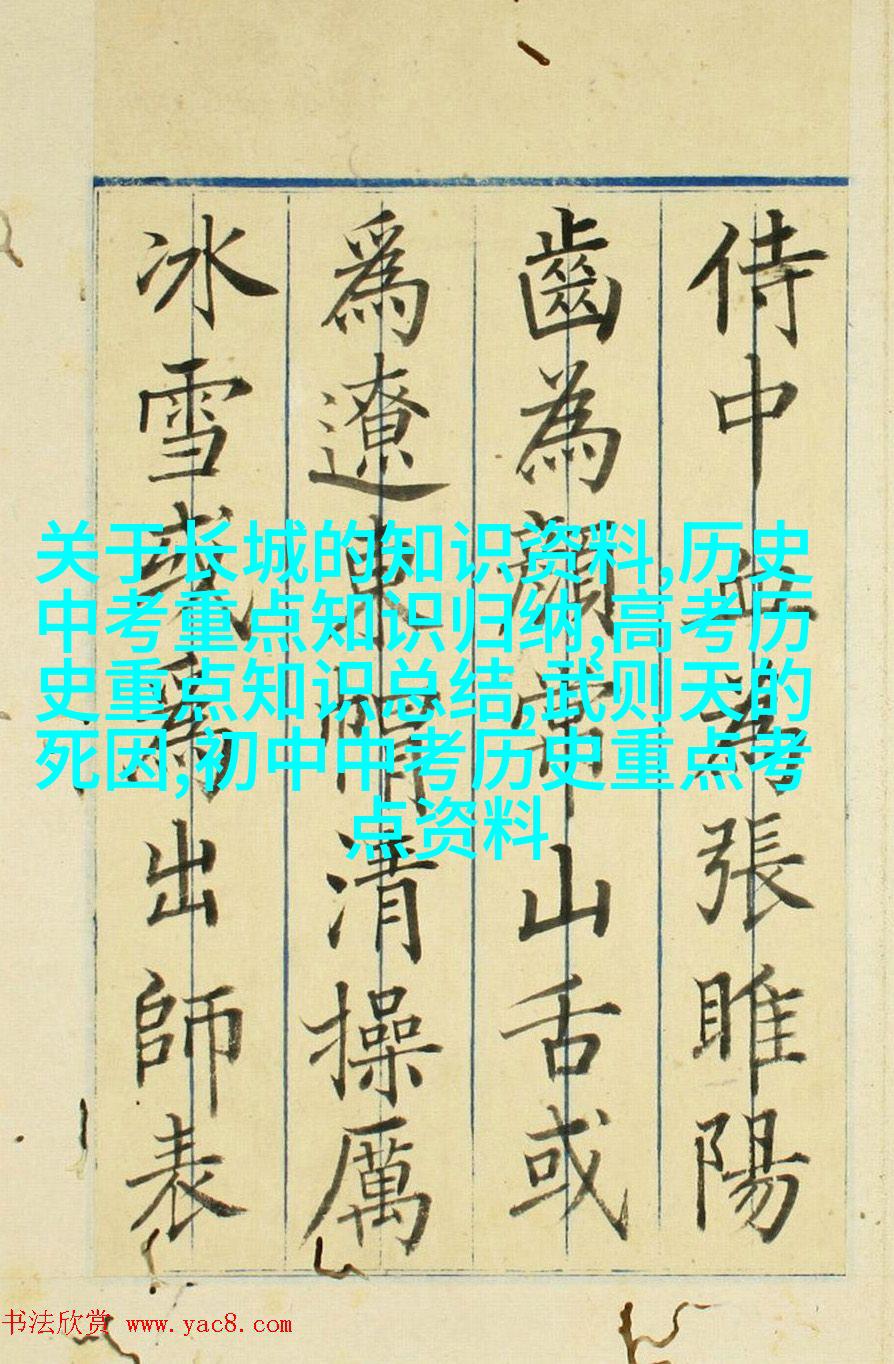 侍中血為張睢陽
齒為顏常山舌或
爲遼東帽清操厲
冰雪或爲出師表
关于长城的知识资料,历史
中考重点知识归纳,高考历
史重点知识总结,武则天的
死因,初中中考历史重点考
点资料
书法欣赏 www.yac8.com